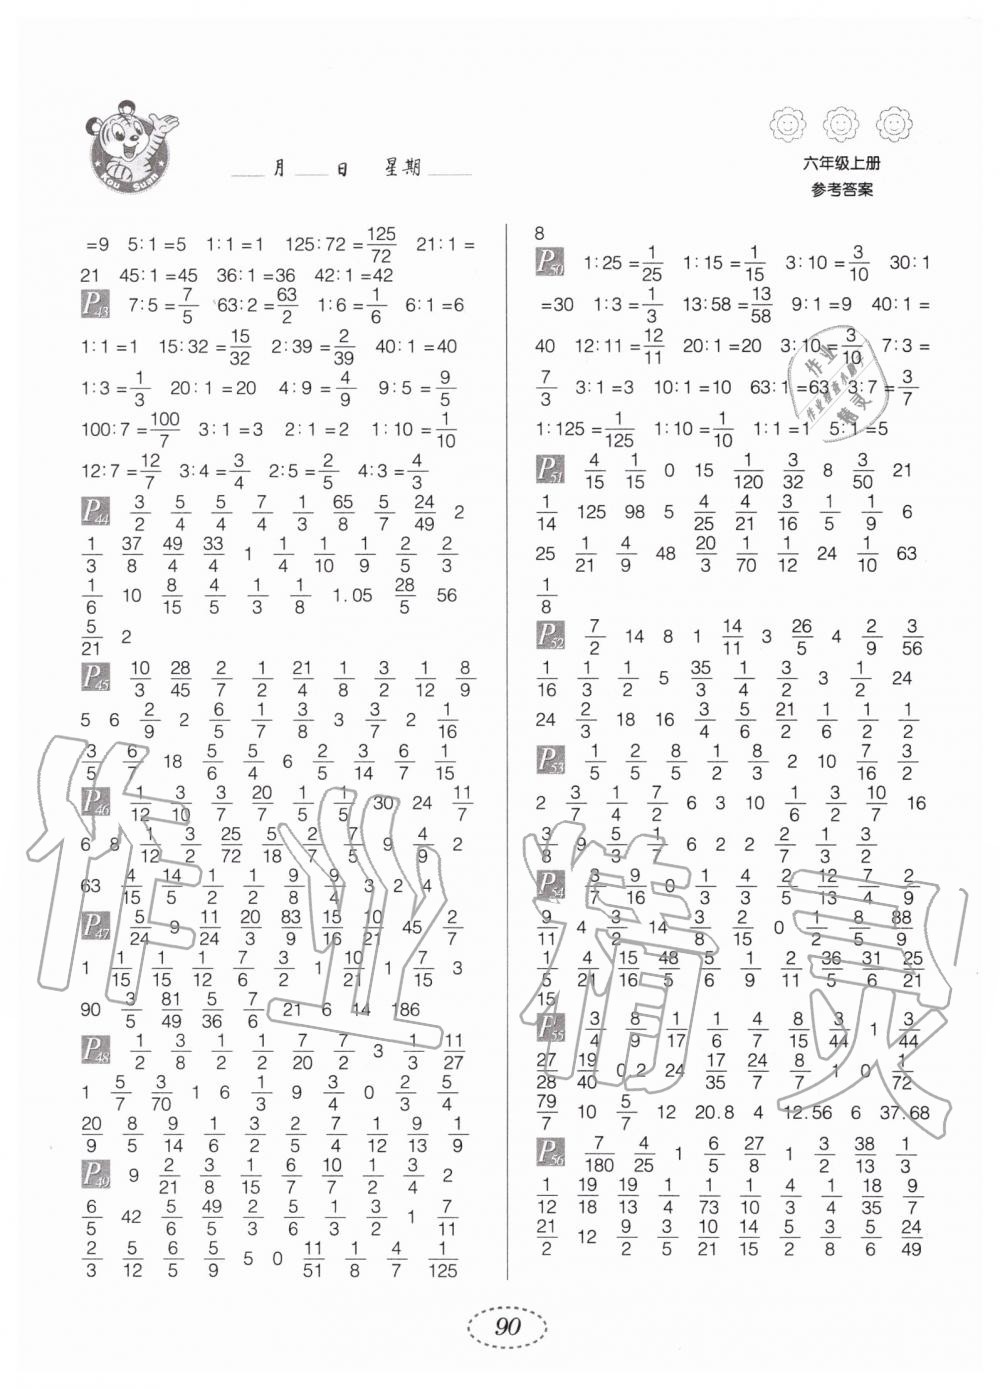 Kou Suan
月 日 星期
六年级上册
参考答案
=9 5:1=5 1:1=1 125:72=125/72 21:1=
21 45:1=45 36:1=36 42:1=42
P43 7:5=7/5 63:2=63/2 1:6=1/6 6:1=6
1:1=1 15:32=15/32 2:39=2/39 40:1=40
1:3=1/3 20:1=20 4:9=4/9 9:5=9/5
100:7=100/7 3:1=3 2:1=2 1:10=1/10
12:7=12/7 3:4=3/4 2:5=2/5 4:3=4/3
P44 3/2 5/4 5/4 7/4 1/3 65/8 5/7 24/49 2
1/3 37/8 49/4 33/4 1 1/4 1/10 1/9 2/5 2/3
1/6 10 8/15 4/5 1/3 1/8 1.05 28/5 56
5/21 2
P45 10/3 28/45 2/7 1/2 21/4 1/8 3/2 1/12 8/9
5 6 2/9 2 6/5 1/7 3/8 3 3/7 2 1/16
3/5 6/7 18 5/6 5/4 6 2/5 3/14 6/7 1/15
P46 1/12 3/10 3/7 20/7 1/5 1/5 30 24 11/7
6 8 1/12 3/2 25/72 5/18 2/7 7/5 9 4/9 2
63 4/15 14/5 1/2 1/2 9/8 9/4 3 2 4
P47 5/24 9 11/24 20/3 83/9 15/16 10/21 45 2/7
1 1/15 1/15 1/12 7/6 3/2 1 10/21 1 7/15 3
90 3/5 81/49 5/36 7/6 21 6 14 186
P48 1/2 3/8 1/2 1/2 7/20 7/2 3 1/3 11/27
1 5/7 3/70 1 6 1/3 9 3/4 0 2/3 5/4
20/9 8/5 9/14 1/6 3/2 2/5 7/4 1/12 9/13 1/9
P49 9 2/21 3/8 1/15 6/7 10/7 1/2 3/4 2
6/5 42 5/6 49/5 2/3 5/6 1/3 3/2 1 7/11
2/3 5/12 6/5 5/9 5 0 11/51 1/8 4/7 1/125
8
P50 1:25=1/25 1:15=1/15 3:10=3/10 30:1
=30 1:3=1/3 13:58=13/58 9:1=9 40:1=
40 12:11=12/11 20:1=20 3:10=3/10 7:3=
7/3 3:1=3 10:1=10 63:1=63 3:7=3/7
1:125=1/125 1:10=1/10 1:1=1 5:1=5
P51 4/15 1/15 0 15 1/120 3/32 8 3/50 21
1/14 125 98 5 4/25 4/21 3/16 1/5 1/9 6
25 1/21 4/9 48 20/3 1/70 1/12 24 1/10 63
1/8
P52 7/2 14 8 1 14/11 3 26/5 4 2/9 3/56
1/16 1/3 1/2 5 35/3 1/4 3/2 3 1/2 24
24 2/3 18 16 3/4 5/6 21/2 1/6 1/2 1/2
P53 1/5 2/5 8/5 1/2 8/3 2 10 7/16 3/2
2 3/7 1/4 7/2 6 3 10 1/6 3/2 10/7 16
3/8 9 5/3 1/9 6 2 2 2/7 1/3 3/2
P54 3/7 9/16 0 1/3 4/3 2/5 12/13 7/4 2/9
9/11 4 3/2 14 3/8 2/15 0 1/2 8/5 88/9
1/5 4/21 15/16 48/5 5/6 1/9 2/11 36/5 31/6 25/21
15
P55 3/4 8/9 1/17 1/6 4/7 8/15 3/44 1 3/44
27/28 19/40 0.2 24 17/35 24/7 8/7 1 0 1/72
79/7 10 5/7 12 20.8 4 12.56 6 37.68
P56 7/180 4/25 1 6/5 27/8 1 3/2 38/13 1/3
1/12 19/18 19/13 1/4 1/73 1/10 4/3 1/4 18/35 9/7
21/2 12 9/2 3/5 10/21 14/15 5/2 3/8 5/6 24/49
90
作业精灵
作业
作业检查小助手
精灵